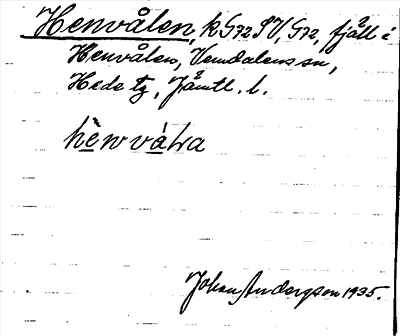 Henvålen, k. G72 SV, G72, fjäll i
Henvålen, Vemdalens sn,
Hede tg, Jämtl. l.
hènvàLra
Johan Anderzson 1935.